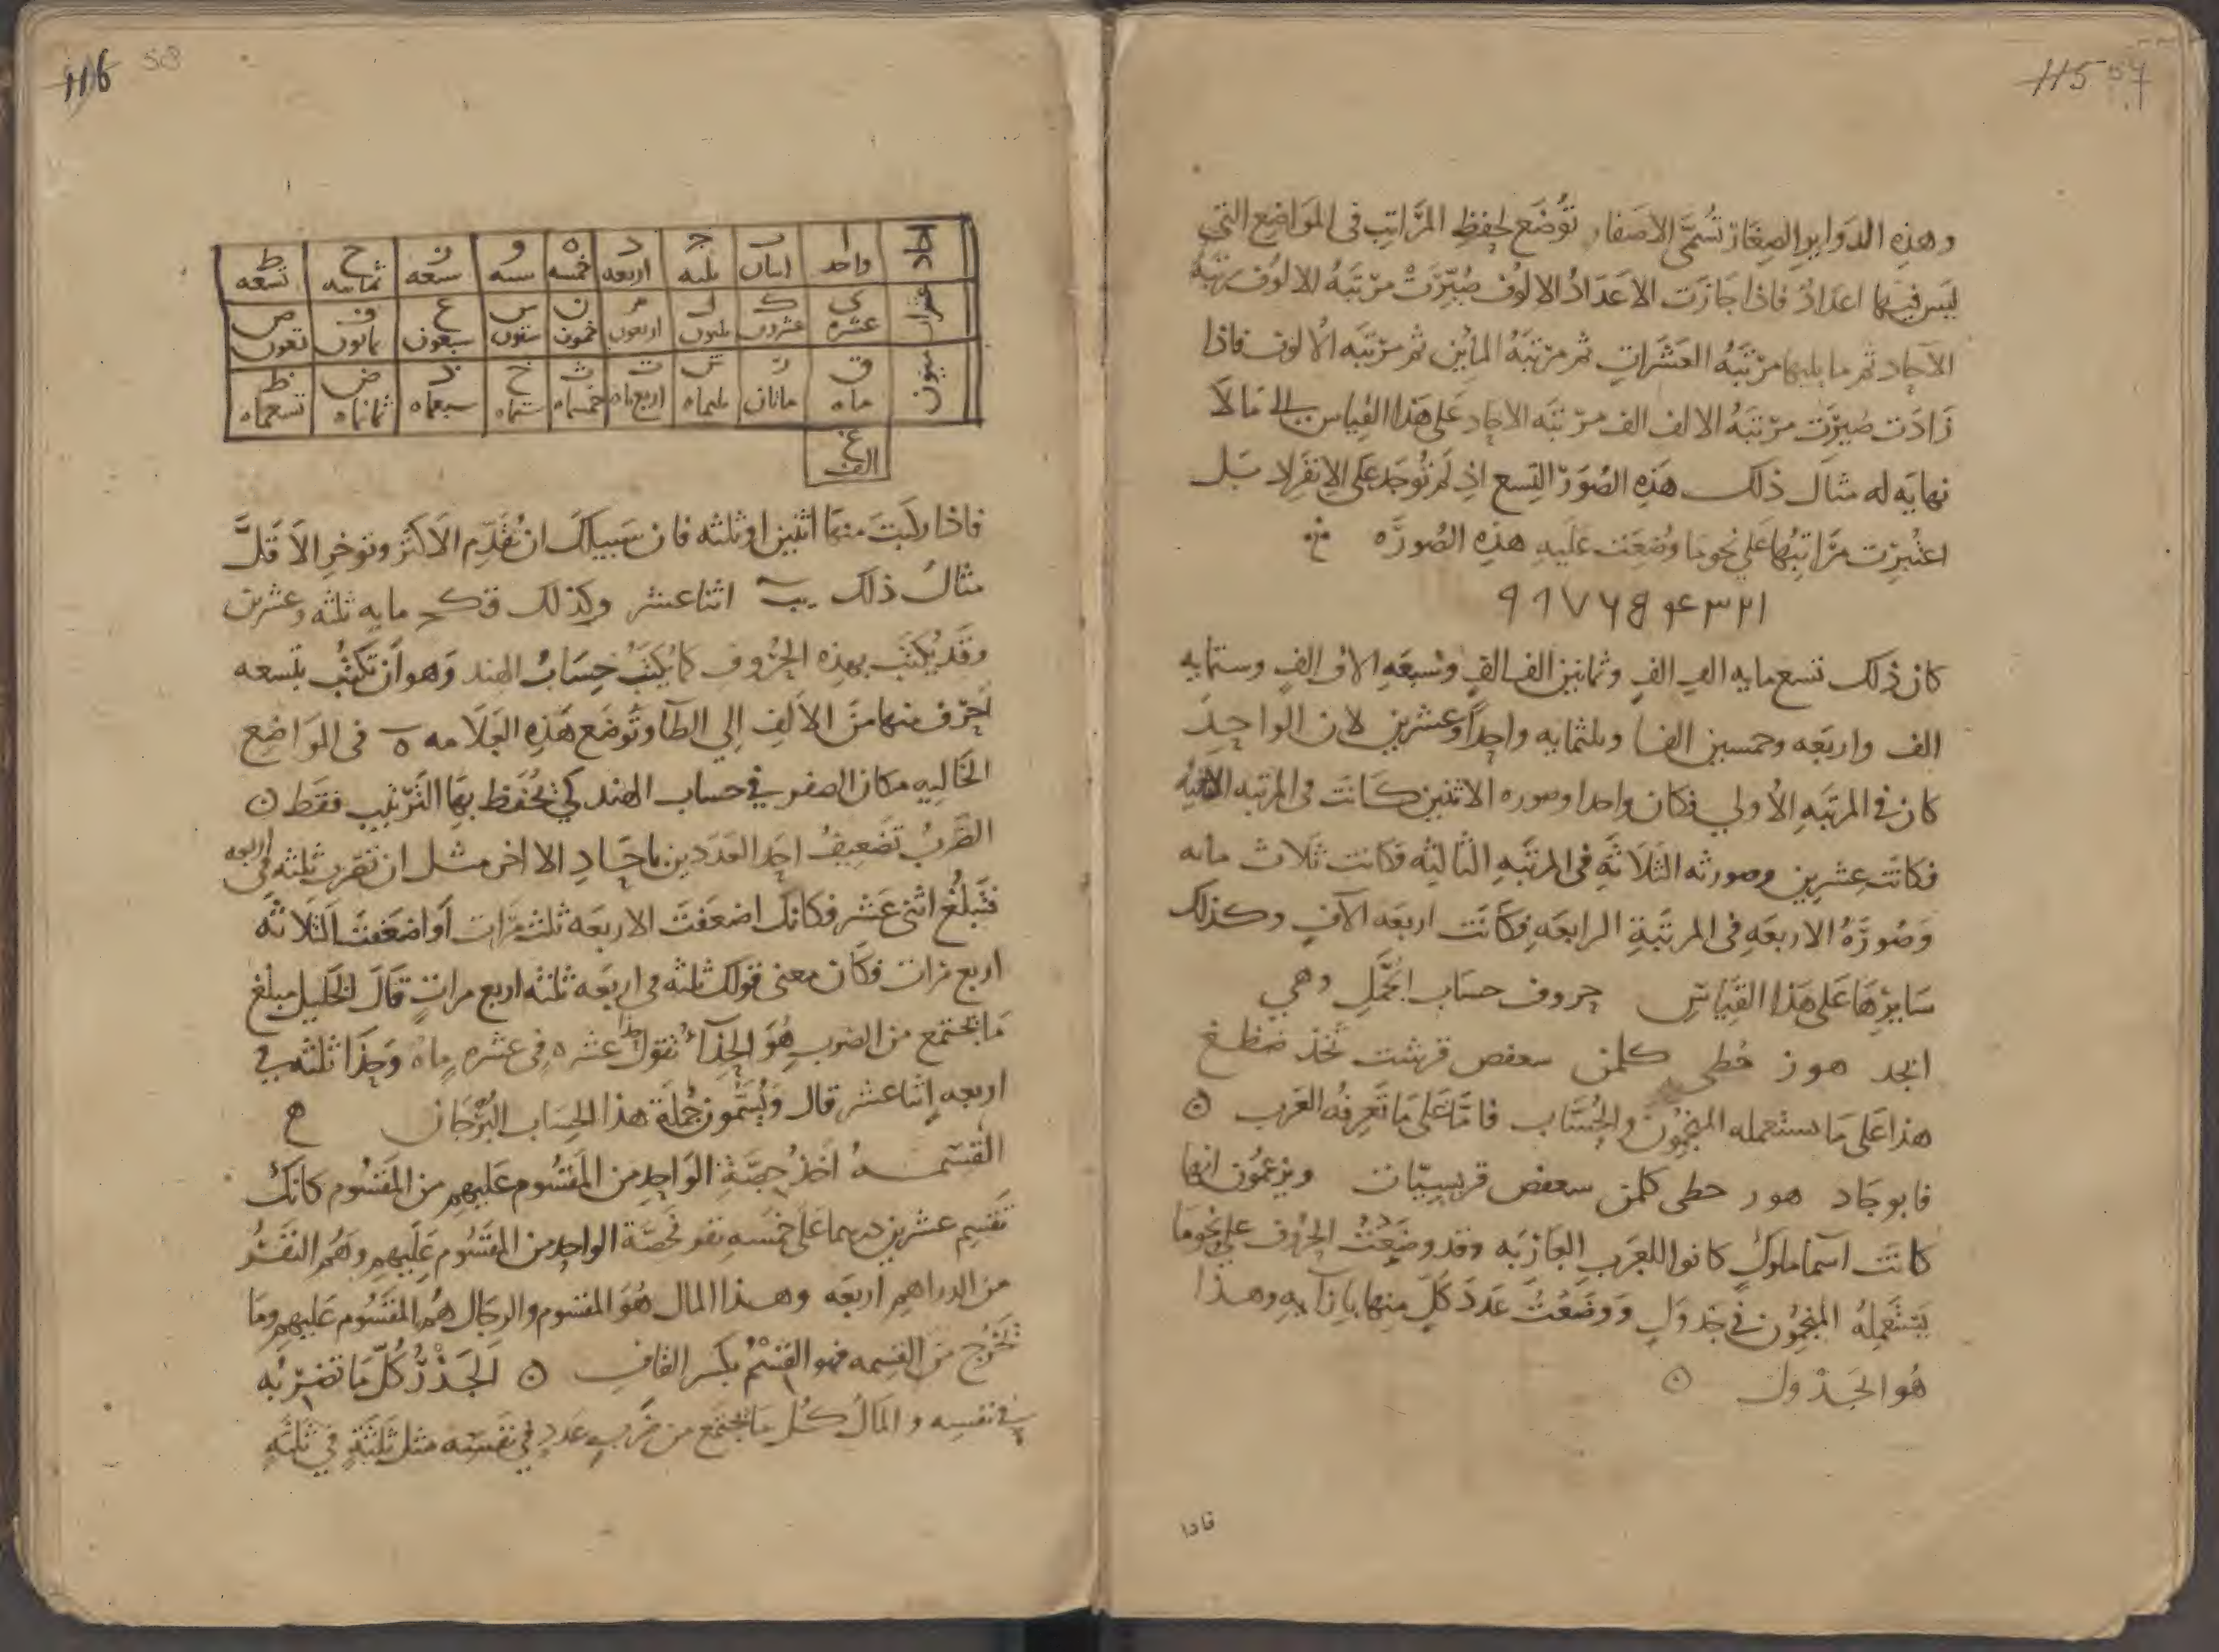 115 57
وهذه الدوایر الصغار تُسمَّى الاصفار تُوضَع لحفظِ المرَاتِب فى المَوَاضِع التى
ليس فيها اعدادٌ فاذا جَازَت الاعدَادُ الالوُف صُيِّرَتْ مرْتبَهُ الالوُف رتبَهُ
الآحاد ثم ما يليها مرْتبَهُ العَشَراتِ ثم مرْتبَهُ المأين ثم مرْتبَه الألوف فاذا
زَادَت صُيِّرَت مرْتبَهُ الالف الف مرْتبَه الاحاد عَلى هَذا القِياس الى مَا لا
نهايَه له مثال ذلك هَذِه الصُوَر التِسع اذ لم تُوجَد عَلى الانفراد بَل
اعتُبِرَت مَرَاتِبُها عَلى نحو ما وُضِعَت عَلَيهِ هذِهِ الصُورَه
٩٨٧٦٥۴٣٢١
كان ذلك تسع مايه الفِ الفٍ وثمانين الف الفٍ وسبعَهِ الافِ الفٍ وستمايه
الف واربَعه وخمسين الفا وثلثمايه واحِداً وعشرين لان الواحِدَ
كان فى المرتبَهِ الأولي فكان واحدا وصوره الاثنين كَانَت فى المرتبه الثانيه
فكانَت عِشرِين وصورته الثَلَاثَهِ فى المرتَبهِ الثالثه فَكانت ثَلاث مائه
وَصُورَهُ الاربعَهِ فى المرتَبَةِ الرابعَهِ فكَانَت اربعَه الآفٍ وكذلك
سَايرُهَا عَلى هَذا القِيَاسِ حروف حسَاب الجُمَّلِ وهي
ابجد هوز حُطى كلمن سعفص قرشت ثخذ ضظغ
هذا عَلى مَا يستعمله المنجمُون والحُسَّاب فامَّا عَلى مَا تَعرِفُه العَرب ۞
فابوجَاد هور حطى كلمن سعفض قريسيّات ويزعمُون انها
كانَت آسمَا ملوكٍ كانوا للعَربِ العَازبَه وقد وضَعْتُ الحرُوف على نحو مَا
يَستَعمِلهُ المنجمُون فى جَدوَلٍ وَوضَعْتُ عَدَدَ كلّ منها بِازآيهِ وهذا
هُو الجَدْول ۞
فاذا
116 58
آحاد | ا واحد | ب اثنان | ج ثلثه | د اربعه | ه خمسه | و سته | ز سبعه | ح ثمانيه | ط تسعه
عشرات | ى عشره | ك عشرون | ل ثلثون | م اربعون | ن خمسون | س ستون | ع سبعون | ف ثمانون | ص تسعون
ميون | ق ماه | ر ماتان | ش ثلثماه | ت اربع ماه | ث خمسماه | خ ستماه | ذ سبعماه | ض ثمانماه | ظ تسعماه
غ الف
فاذا ركبتَ منها اثنين او ثلثه فان سَبيلك ان تُقَدِّم الاكثر وتوخرِ الاَقلَّ
مثالُ ذلك يب اثنا عشر وكذلك قكح مايه ثلثه وعشرين
وقَد يُكتَب بهذه الحرُوف كما يُكتَبُ حِسَابُ الهند وَهو اَن تكتُبَ بتسعه
اَحرُف منها منَ الاَلِف الي الطآ وتُوضَع هَذِه العَلَامه ه فى المَواضِع
الخَاليه مكان الصفر في حساب الهند كي تُحفَظ بهَا التَرتيب فقَط ۞
الضَربُ تَضعِيفُ احَد العَدَدين باحَادِ الاخر مثل ان تَضرِب ثلثه فى اربعه
فتَبلُغ اثنى عَشر فكانك اضعَفتَ الاربعَه ثلث مَرَّات اَو اضعَفتَ الثَلاثَه
اربع مرات فكَان معنى قولك ثلثه فى اربَعَه ثلثه اربع مراتٍ قَالَ الخَليل مبلَغ
مَا يجتمع من الضَربِ هُوَ الجِذَآءُ نقول جذا عشره فِى عشرهِ ماه وَجذَا ثلثه في
اربعهِ اِثنا عشر قال وَيُسمُّون جُملَة هَذا الحِسَاب البُرْجَان
القسمـه اَخذُ حِصَّةِ الوَاحِد من المَقسُوم عَليهِم من المَقسُوم كانك
تقسِم عشرين درهما عَلى خمسَه نفر فحصَّة الواحِد من المقسُوم عَلَيهِم وَهُم النَفَرُ
من الدراهم اربعَه وهـذا المال هُوَ المقسُوم والرجال هُم المَقسُوم عَليهم ومَا
يَخرُج من القسمه فهو القِسْمُ بكسر القاف ۞ اَلجَذْرُ كلُّ مَا تضرِبُه
فى نفسِه والمَالُ كُل مَا يجتمع من ضَربِ عَددٍ في نفسِه مثل ثَلثةٍ فى ثلثهِ